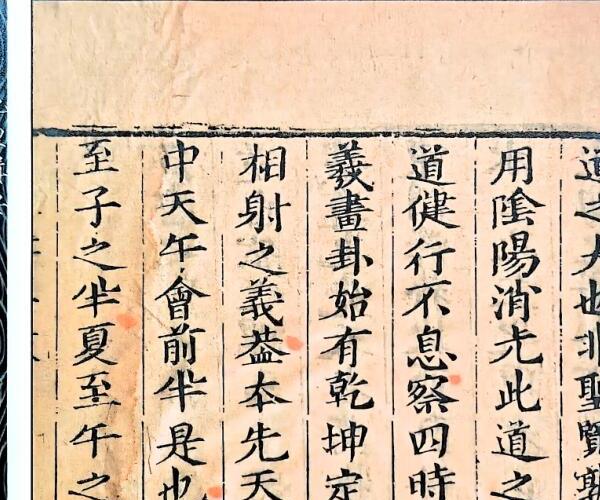 道之大也非聖賢
用陰陽消尤此道之
道健行不息察四時
羲畫卦始有乾坤定
相射之義葢本先天
中天午會前半是也
至子之半夏至午之